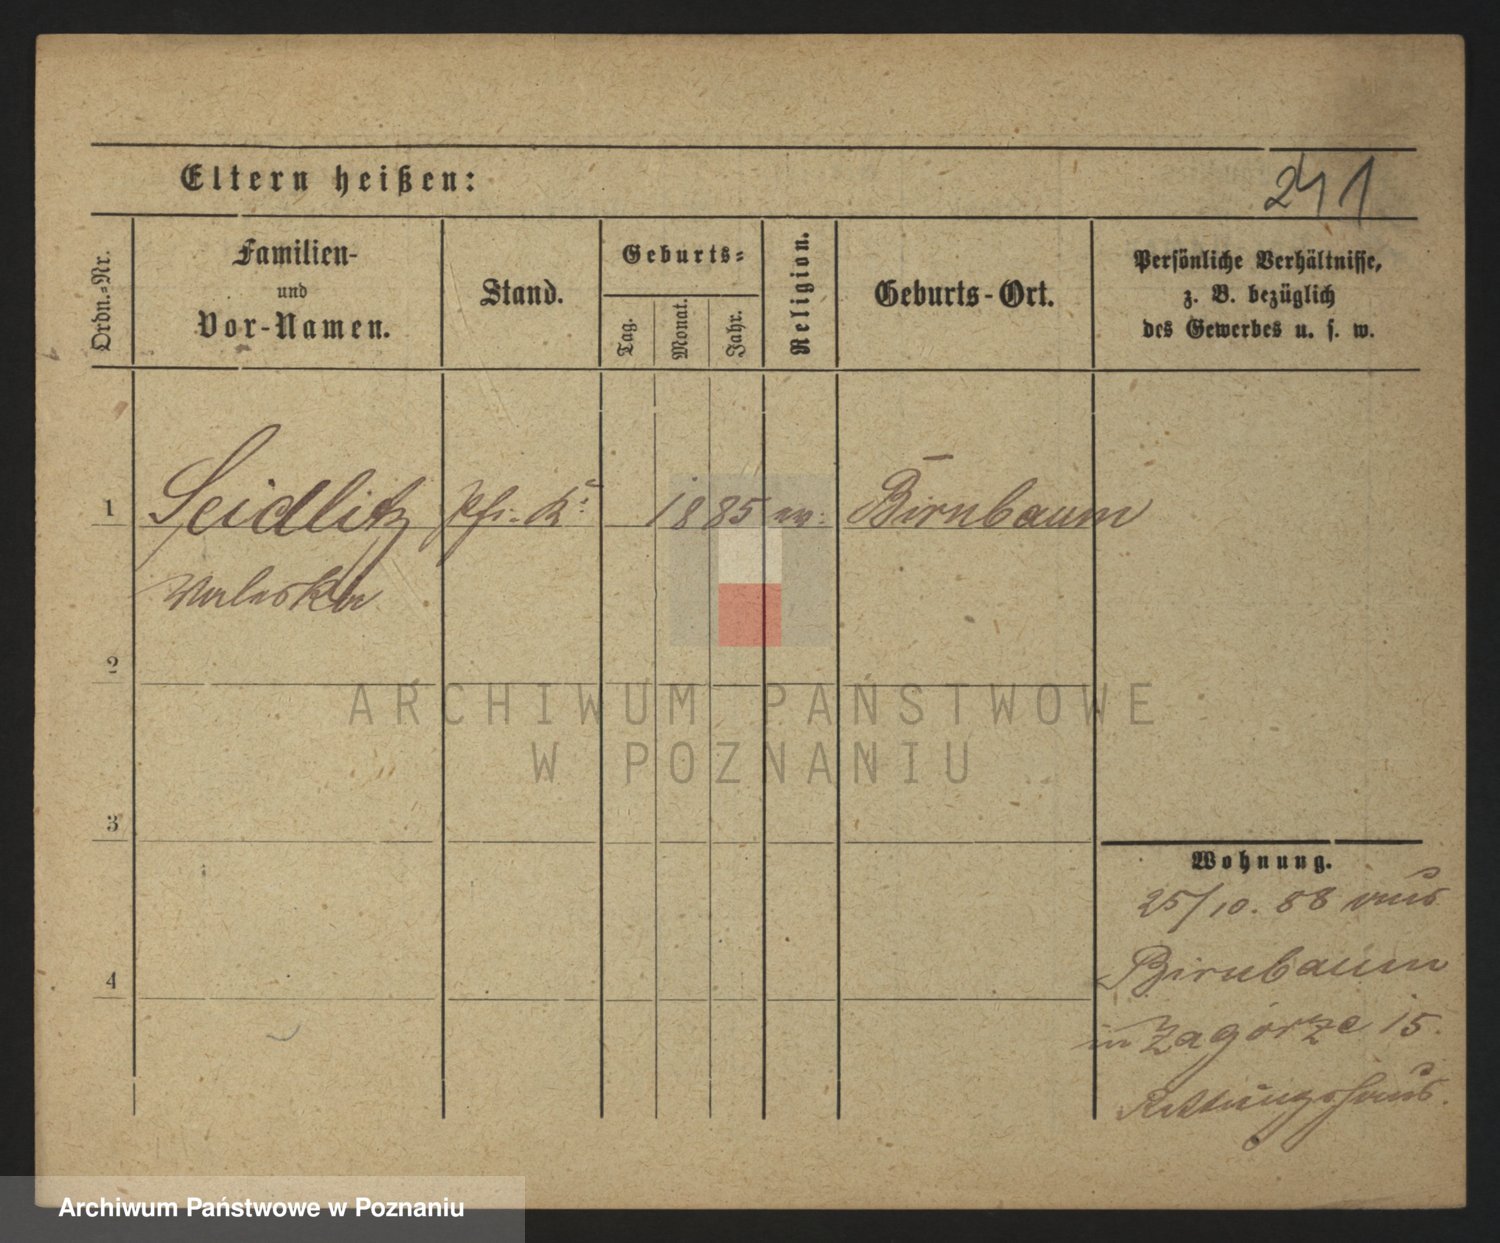 Eltern heißen:
241
Ordn.-Nr.
Familien-
und
Vor-Namen.
Stand.
Geburts-
Tag.
Monat.
Jahr.
Religion.
Geburts-Ort.
Persönliche Verhältnisse,
z. B. bezüglich
des Gewerbes u. s. w.
1 Seidlitz Pfl. K. 1885 Birnbaum
Valeska
2
ARCHIWUM PAŃSTWOWE
W POZNANIU
3
Wohnung.
25/10. 88 aus
Birnbaum
4
in Zagórze 15.
Rettungshaus.
Archiwum Państwowe w Poznaniu